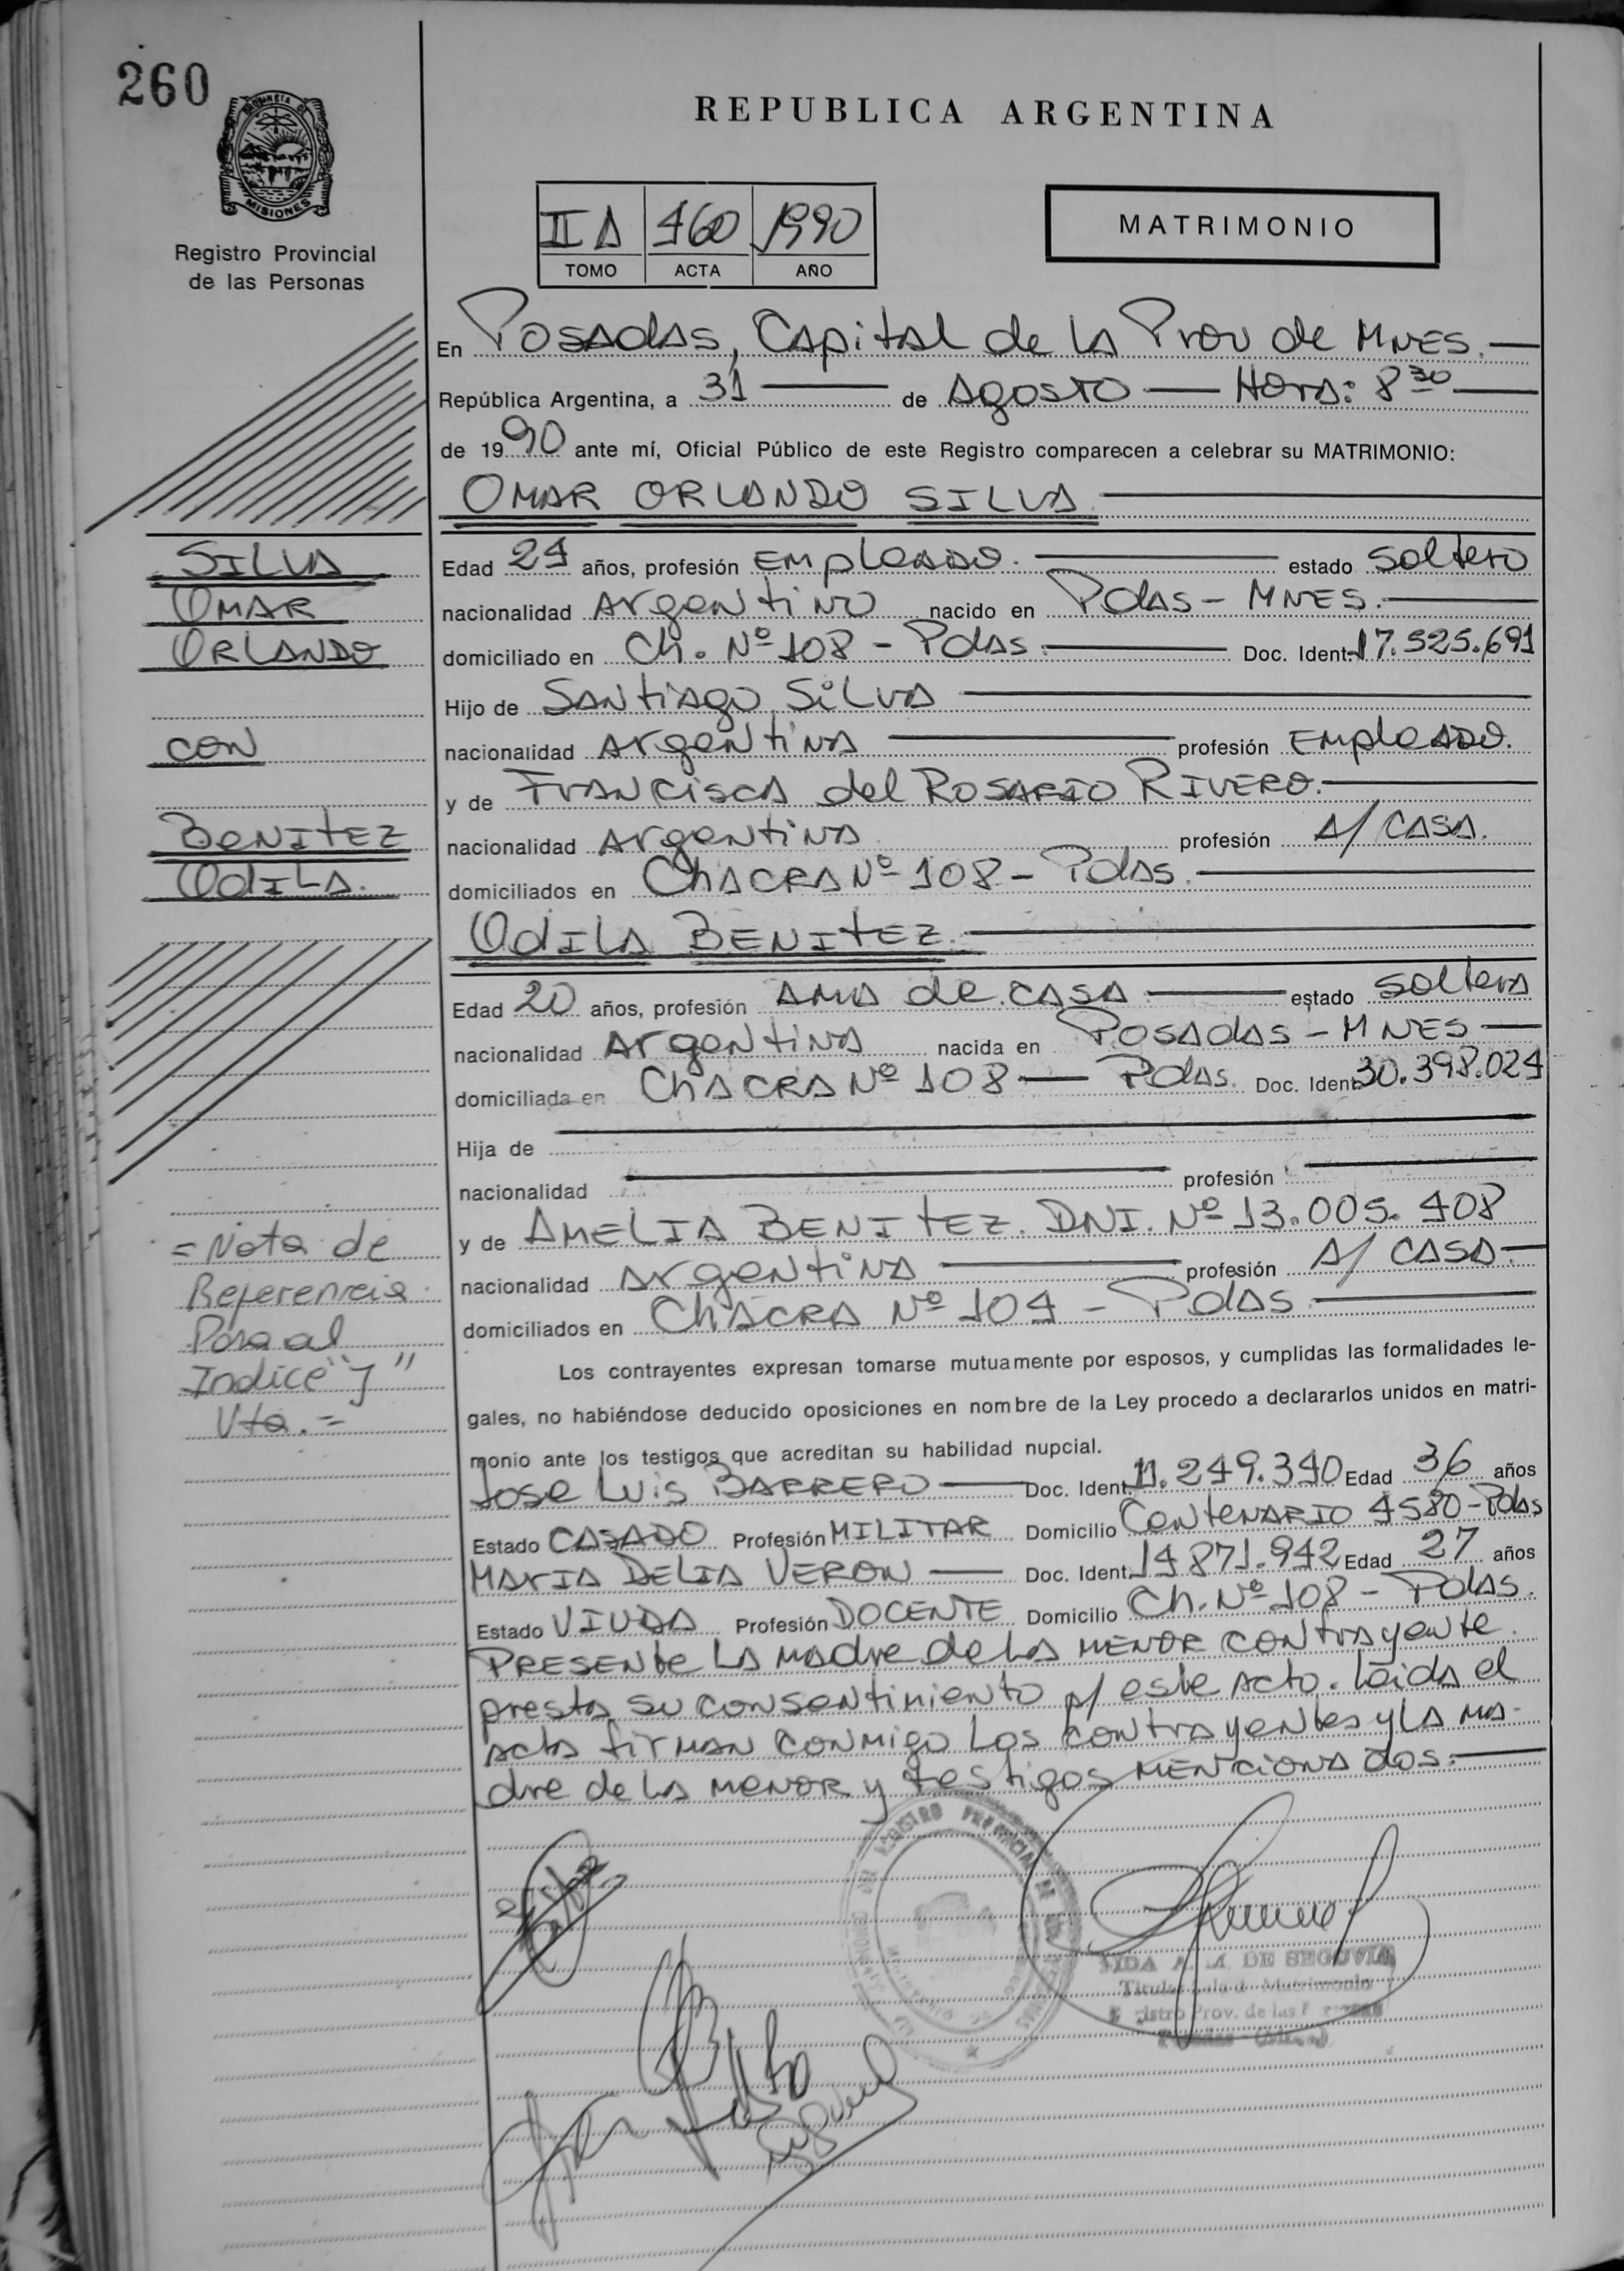 260
PROVINCIA DE
MISIONES
Registro Provincial
de las Personas
REPUBLICA ARGENTINA
II A 460 1990
TOMO ACTA AÑO
MATRIMONIO
En Posadas, Capital de la Prov de Mnes.
República Argentina, a 31 de Agosto Hora: 8 30
de 1990 ante mí, Oficial Público de este Registro comparecen a celebrar su MATRIMONIO:
OMAR ORLANDO SILVA
Edad 24 años, profesión Empleado. estado Soltero
nacionalidad Argentino nacido en Pdas - Mnes.
domiciliado en Ch. Nº 108 - Pdas. Doc. Ident. 17.525.691
Hijo de Santiago Silva
nacionalidad Argentina profesión Empleado.
y de Francisca del Rosario Rivero.
nacionalidad Argentina profesión A/ casa.
domiciliados en Chacra Nº 108 - Pdas.
Odila Benitez.
Edad 20 años, profesión Ama de casa estado Soltera
nacionalidad Argentina nacida en Posadas - Mnes
domiciliada en Chacra Nº 108 Pdas. Doc. Ident. 30.398.024
Hija de
nacionalidad profesión
y de Amelia Benitez. DNI. Nº 13.005.408
nacionalidad Argentina profesión A/ casa
domiciliados en Chacra Nº 104 - Pdas
Los contrayentes expresan tomarse mutuamente por esposos, y cumplidas las formalidades le-
gales, no habiéndose deducido oposiciones en nombre de la Ley procedo a declararlos unidos en matri-
monio ante los testigos que acreditan su habilidad nupcial.
Jose Luis Barrero Doc. Ident. 11.249.340 Edad 36 años
Estado Casado Profesión Militar Domicilio Centenario 4580 - Pdas
Maria Delia Veron Doc. Ident. 14871.942 Edad 27 años
Estado Viuda Profesión Docente Domicilio Ch. Nº 108 - Pdas.
Presente la madre de la menor contrayente
presta su consentimiento p/ este acto. Leida el
acta firman conmigo los contrayentes y la ma-
dre de la menor y testigos mencionados.
SILVA
OMAR
ORLANDO
con
BENITEZ
Odila.
= Nota de
Referencia
Para al
Indice "J"
Vta. =
REGISTRO PROVINCIAL DE LAS PERSONAS
DE SEGOVIA
Titular Sala d Matrimonio
Prov. de las